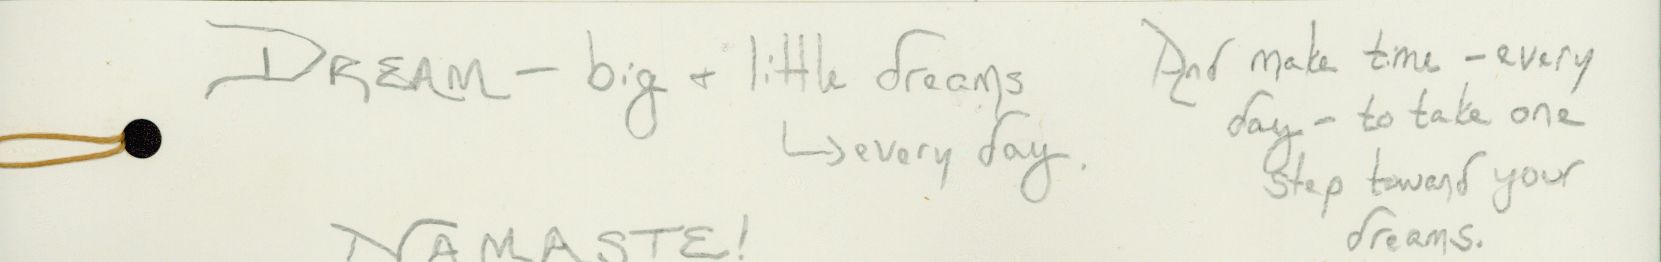 DREAM - big + little dreams
↳ every day.
NAMASTE!
And make time - every
day - to take one
step toward your
dreams.